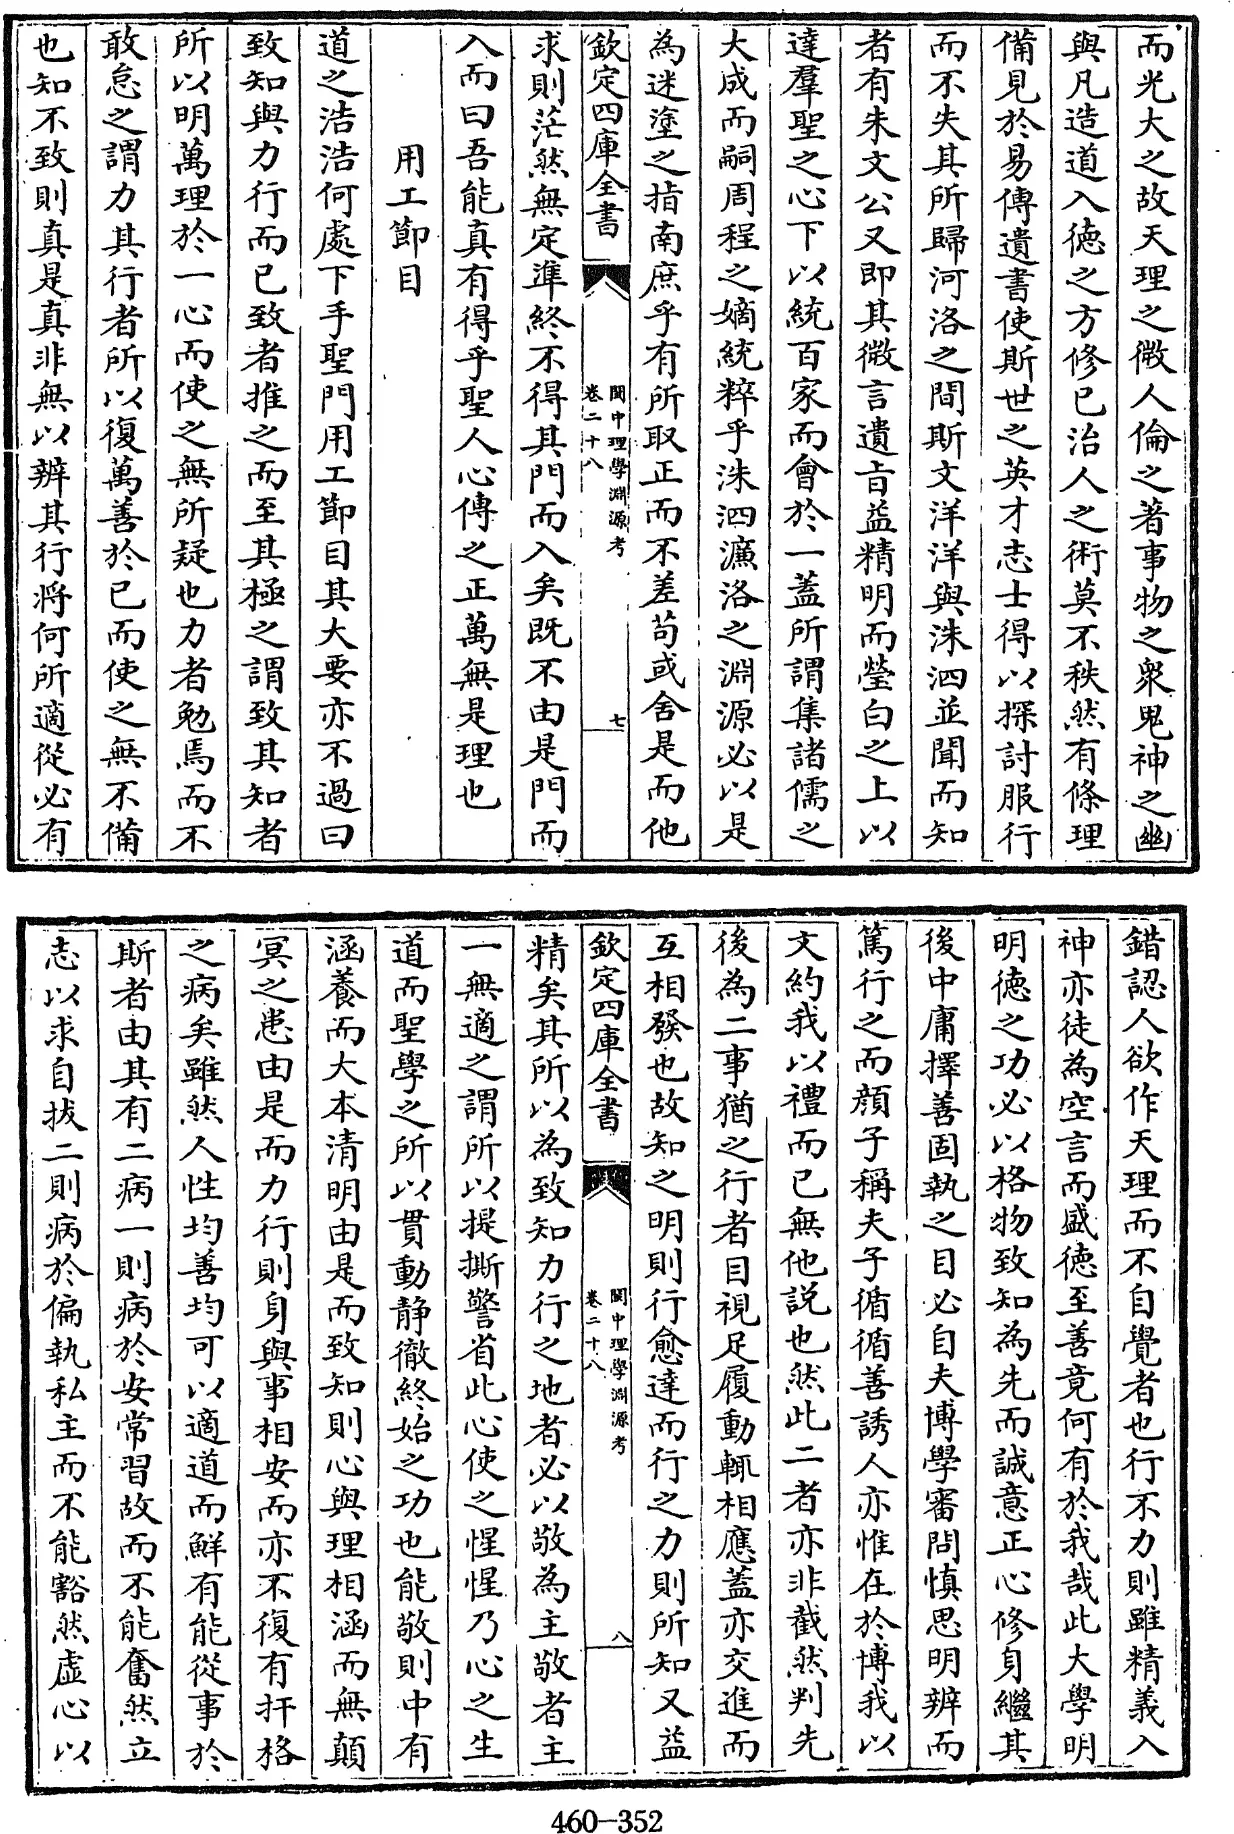 而光大之故天理之微人倫之著事物之衆鬼神之幽
與凡造道入徳之方修已治人之術莫不秩然有條理
備見於易傳遺書使斯世之英才志士得以探討服行
而不失其所歸河洛之間斯文洋洋與洙泗並聞而知
者有朱文公又即其微言遺㫖益精明而瑩白之上以
達羣聖之心下以統百家而會於一蓋所謂集諸儒之
大成而嗣周程之嫡統粹乎洙泗濂洛之淵源必以是
為迷塗之指南庶乎有所取正而不差茍或舍是而他
欽定四庫全書 閩中理學淵源考 卷二十八 七
求則茫然無定準終不得其門而入矣既不由是門而
入而曰吾能真有得乎聖人心傳之正萬無是理也
用工節目
道之浩浩何處下手聖門用工節目其大要亦不過曰
致知與力行而已致者推之而至其極之謂致其知者
所以明萬理於一心而使之無所疑也力者勉焉而不
敢怠之謂力其行者所以復萬善於已而使之無不備
也知不致則真是真非無以辨其行將何所適從必有
錯認人欲作天理而不自覺者也行不力則雖精義入
神亦徒為空言而盛徳至善竟何有於我哉此大學明
明徳之功必以格物致知為先而誠意正心修身繼其
後中庸擇善固執之目必自夫博學審問慎思明辨而
篤行之而顔子稱夫子循循善誘人亦惟在於博我以
文約我以禮而已無他説也然此二者亦非截然判先
後為二事猶之行者目視足履動輒相應蓋亦交進而
互相發也故知之明則行愈達而行之力則所知又益
欽定四庫全書 閩中理學淵源考 卷二十八 八
精矣其所以為致知力行之地者必以敬為主敬者主
一無適之謂所以提撕警省此心使之惺惺乃心之生
道而聖學之所以貫動静徹終始之功也能敬則中有
涵養而大本清明由是而致知則心與理相涵而無顛
冥之患由是而力行則身與事相安而亦不復有扞格
之病矣雖然人性均善均可以適道而鮮有能從事於
斯者由其有二病一則病於安常習故而不能奮然立
志以求自拔二則病於偏執私主而不能豁然虚心以
460-352